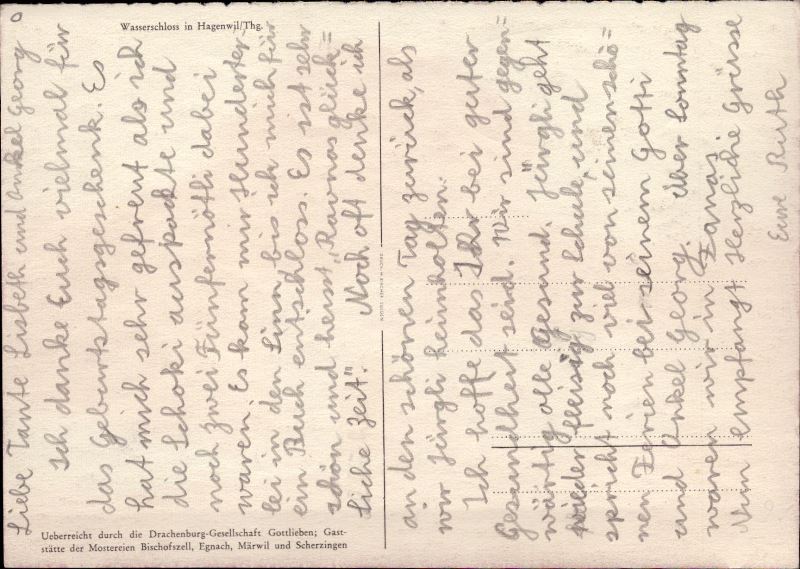 Wasserschloss in Hagenwil/Thg.
Liebe Tante Lisbeth und Onkel Georg
Ich danke Euch vielmal für
das Geburtstagsgeschenk. Es
hat mich sehr gefreut als ich
die Schoki auspackte und
noch zwei Fünfernötli dabei
waren. Es kam mir Hunderter-
lei in den Sinn, bis ich mich für
ein Buch entschloss. Es ist sehr
schön und heisst „Ravnas glück=
liche Zeit". Noch oft denke ich
an den schönen Tag zurück, als
wir Jürgli heimholten.
Ich hoffe das Ihr bei guter
Gesundheit seid. Wir sind gegen=
wärtig alle Gesund. Jürgli geht
wieder fleisig zur Schule, und
spricht noch viel von seinen schö=
nen Ferien bei seinem Gotti
und Onkel Georg. Über Sonntag
waren wir in Fanas.
Nun empfangt Herzliche Grüsse
Eure Ruth
Ueberreicht durch die Drachenburg-Gesellschaft Gottlieben; Gast-
stätte der Mostereien Bischofszell, Egnach, Märwil und Scherzingen